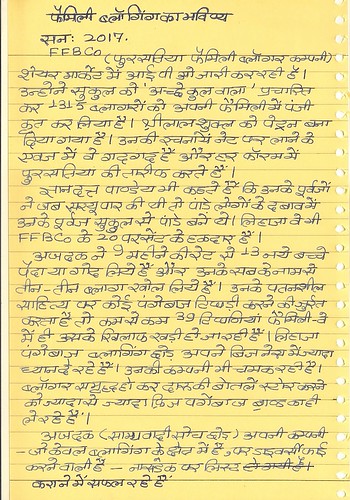 फैमिली ब्लॉगिंग का भविष्य
सन: 2017.
FFBCo (फुरसतिया फैमिली ब्लॉगर कम्पनी)
शेयर मार्केट में आई पी ओ जारी कर रही है।
उन्होंने सुकुल को 'अच्छे कुल वाला' प्रचारित
कर 1315 ब्लॉगरों को अपनी फैमिली में पंजी
कृत कर लिया है। श्रीलाल शुक्ल को पेट्रन बना
दिया गया है। उनकी रचनायें नेट पर लाने के
एवज में वे गदगद हैं और हर फॉरम में
फुरसतिया की तारीफ करते हैं।
ज्ञानदत्त पाण्डेय भी कहते हैं कि उनके पूर्वजों
ने जब सरयू पार की थी तो पांडे लोगों के दबाव में
उनके पूर्वज सुकुल से पांडे बने थे। लिहाजा वे भी
FFBCo के 20 परसेंट के हकदार हैं।
अजदक ने 9 महीने की रेट से 13 नये बच्चे
पैदा या गोद लिये हैं और उनके सबके नाम से
तीन-तीन ब्लाग खोल लिये हैं। उनके पतनशील
साहित्य पर कोई पंगेबाज टिप्पणी करने की जुर्रत
करता है तो कम से कम 39 टिप्पणियां फैमिली-
में ही उसके खिलाफ खड़ी हो जा रही हैं। लिहाजा
पंगेबाज ब्लागिंग छोड़ अपने बिजनेस में ज्यादा
ध्यान दे रहे हैं। उनकी कम्पनी भी चमक रही है।
ब्लॉगार समूह हो कर दारू की बोतलें स्टोर करने
को ज्यादा से ज्यादा फ्रिज पंगेबाज ब्राण्ड का ही
ले रहे हैं।
अजदक (साम्यवादी सोच छोड़) अपनी कम्पनी
- जो केवल ब्लागिंग के क्षेत्र में है, पर डाइवर्सीफाई
करने वाली है - नास्डैक पर लिस्ट
कराने में सफल रहे हैं